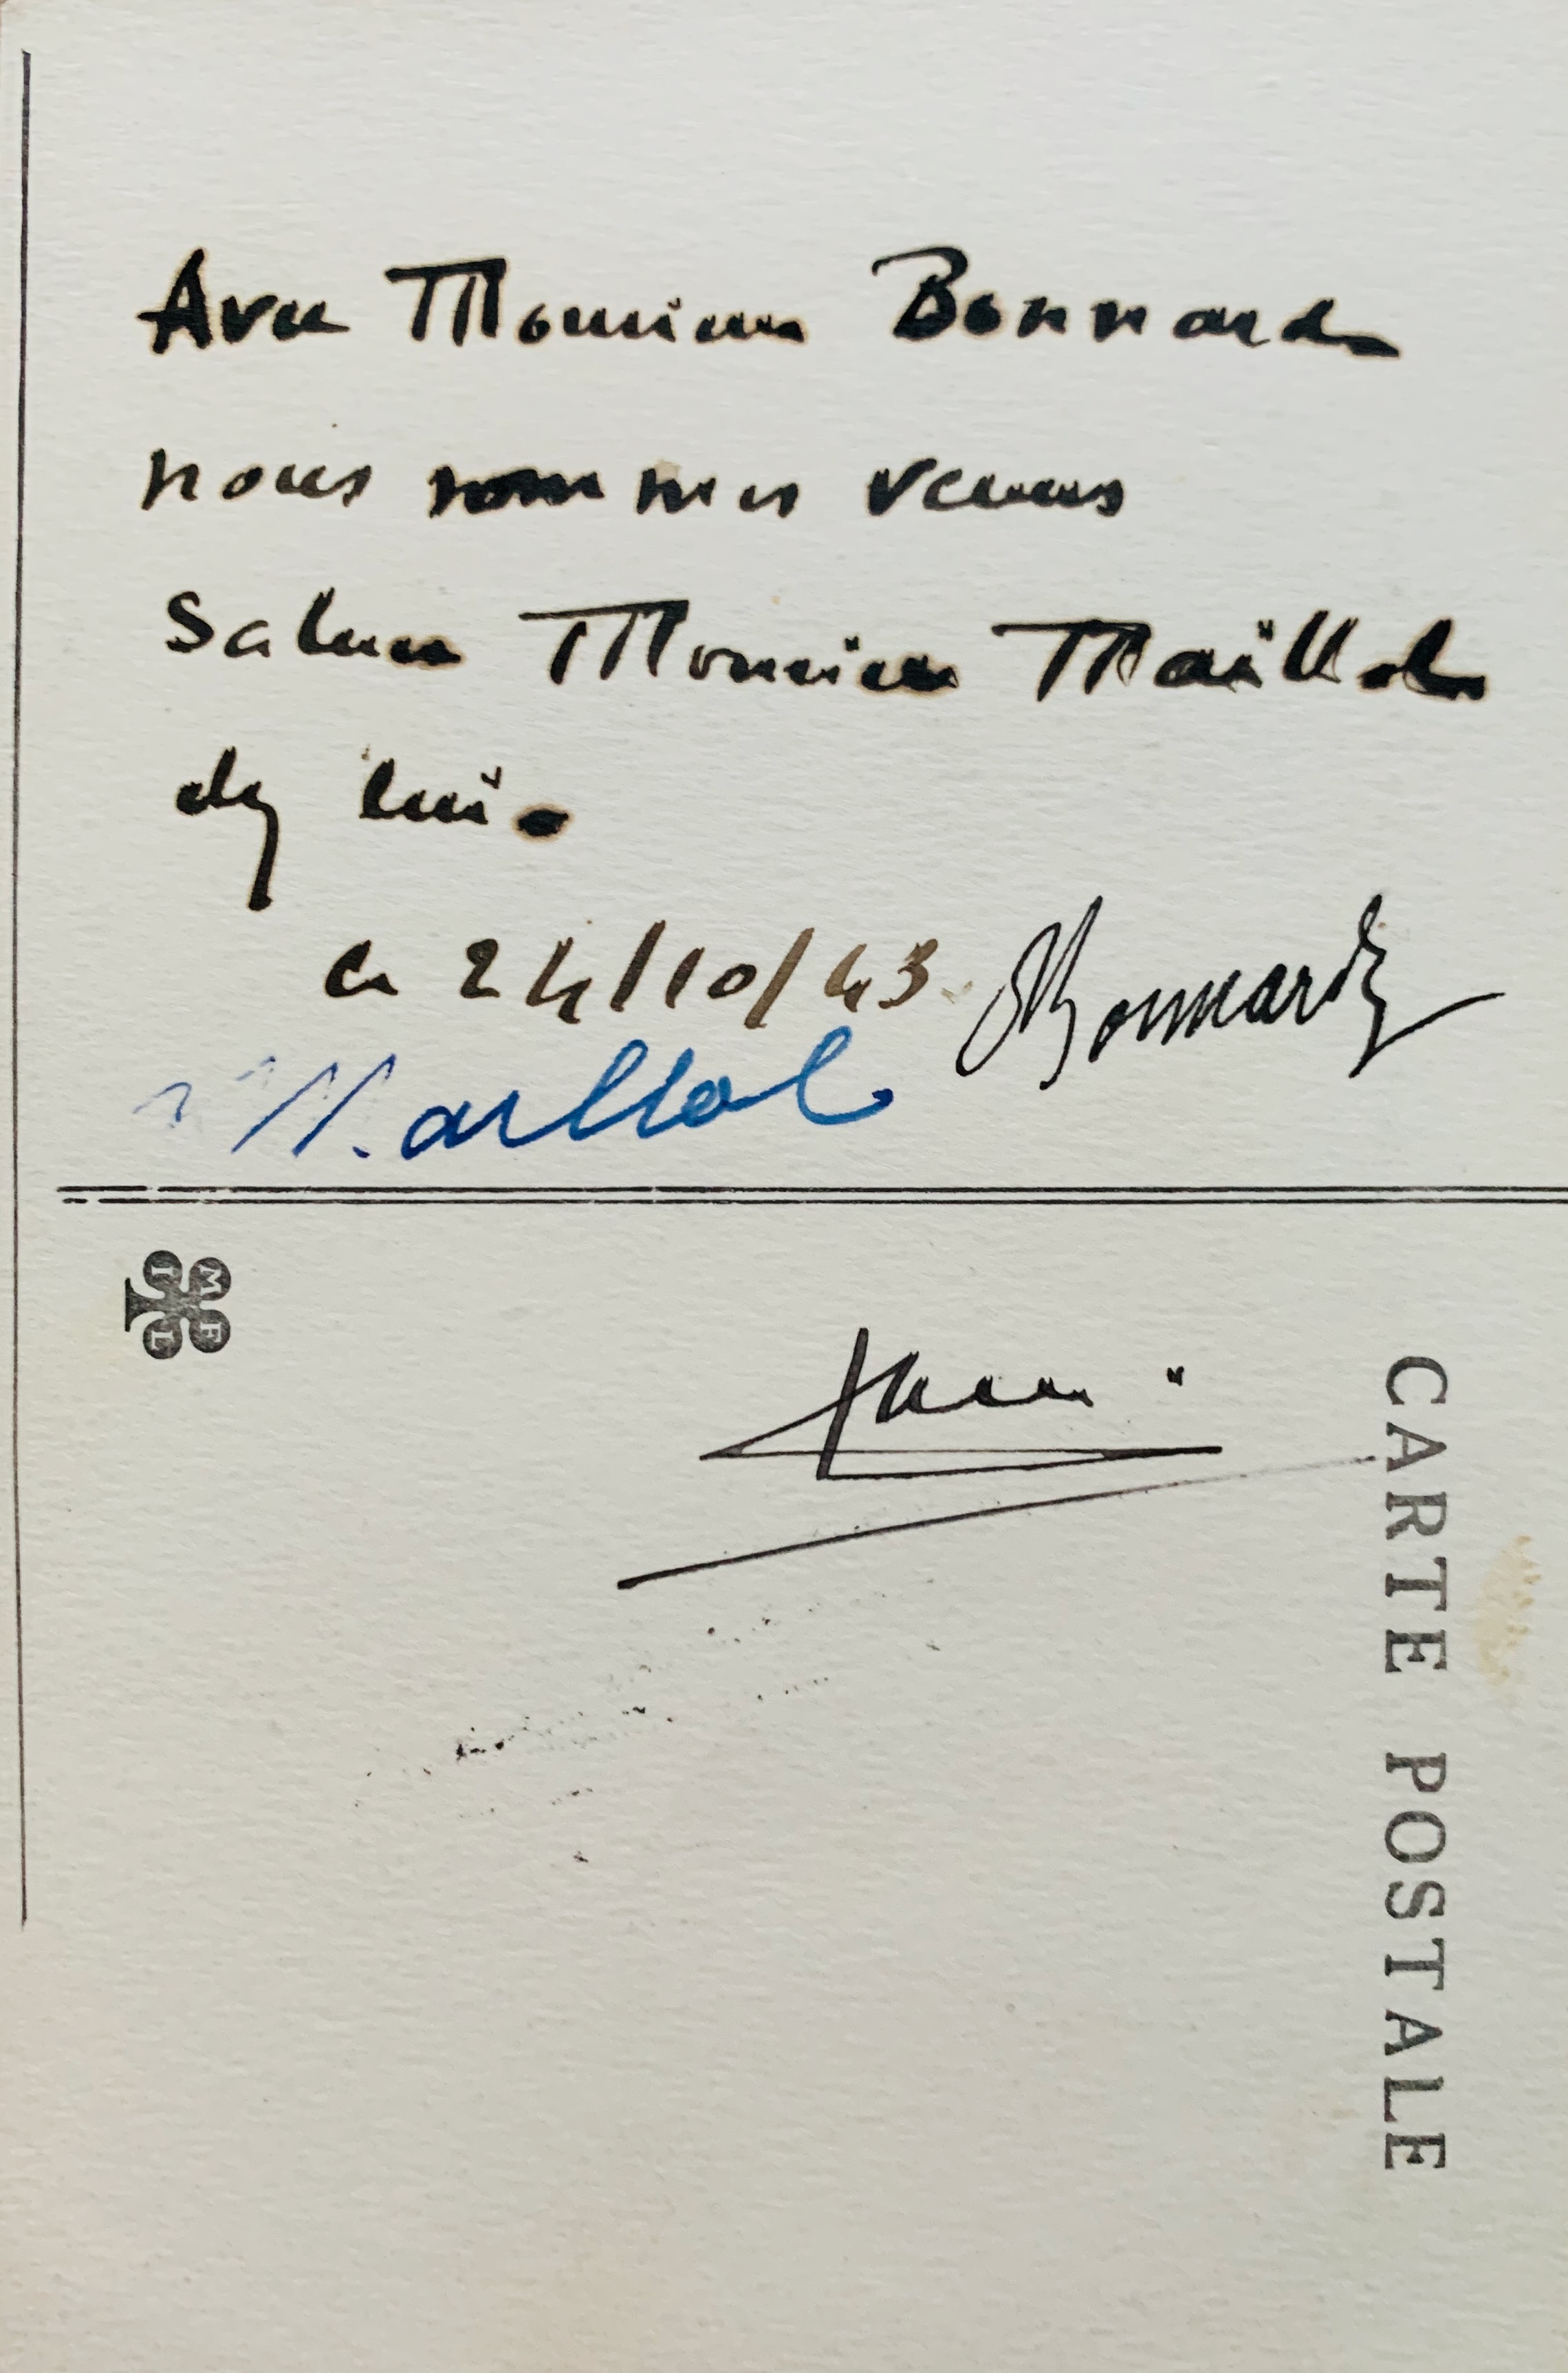 Avec Monsieur Bonnard
nous sommes venus
Saluer Monsieur Maillol
chez lui.
le 24/10/43
Bonnard
Maillol
M F
I L
CARTE POSTALE